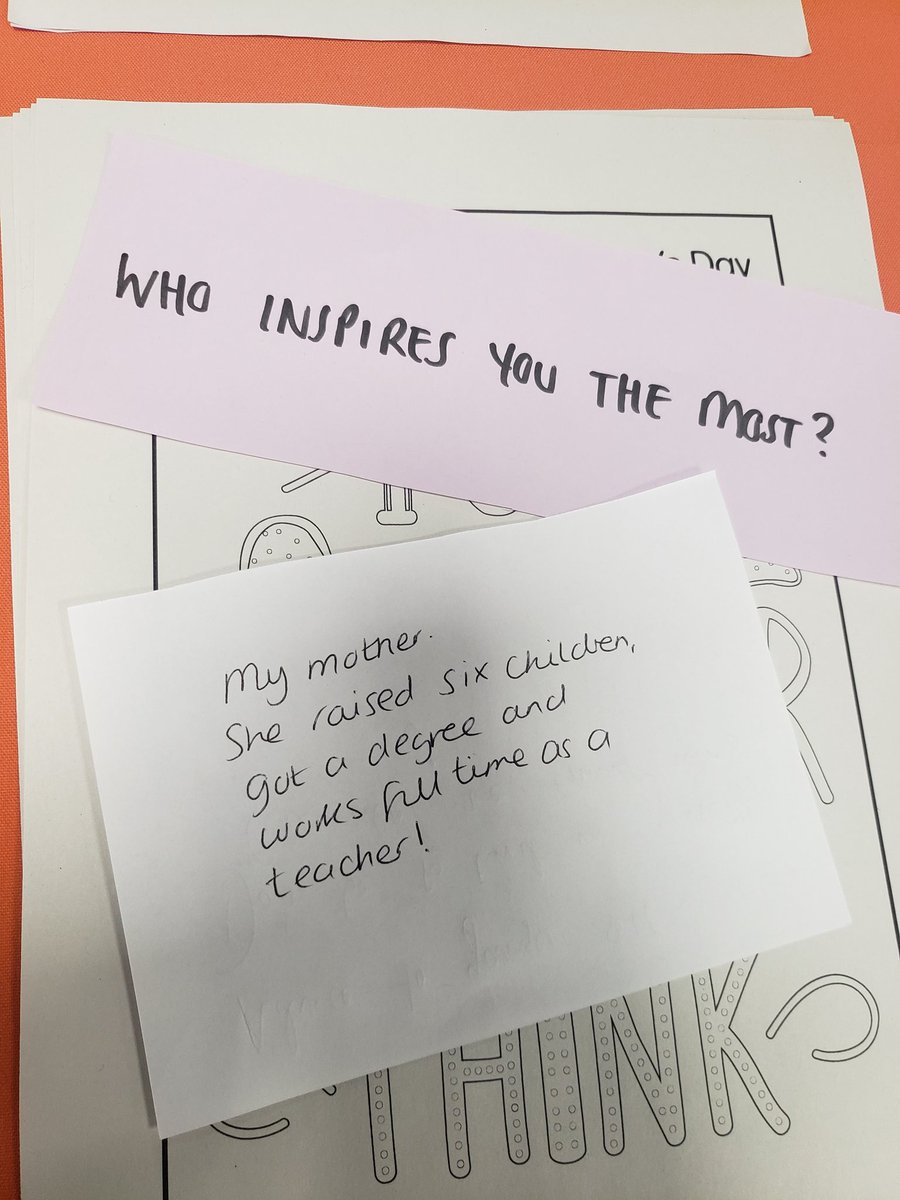 Day
WHO INSPIRES YOU THE MOST?
My mother.
She raised six children,
got a degree and
works full time as a
teacher!
THINK